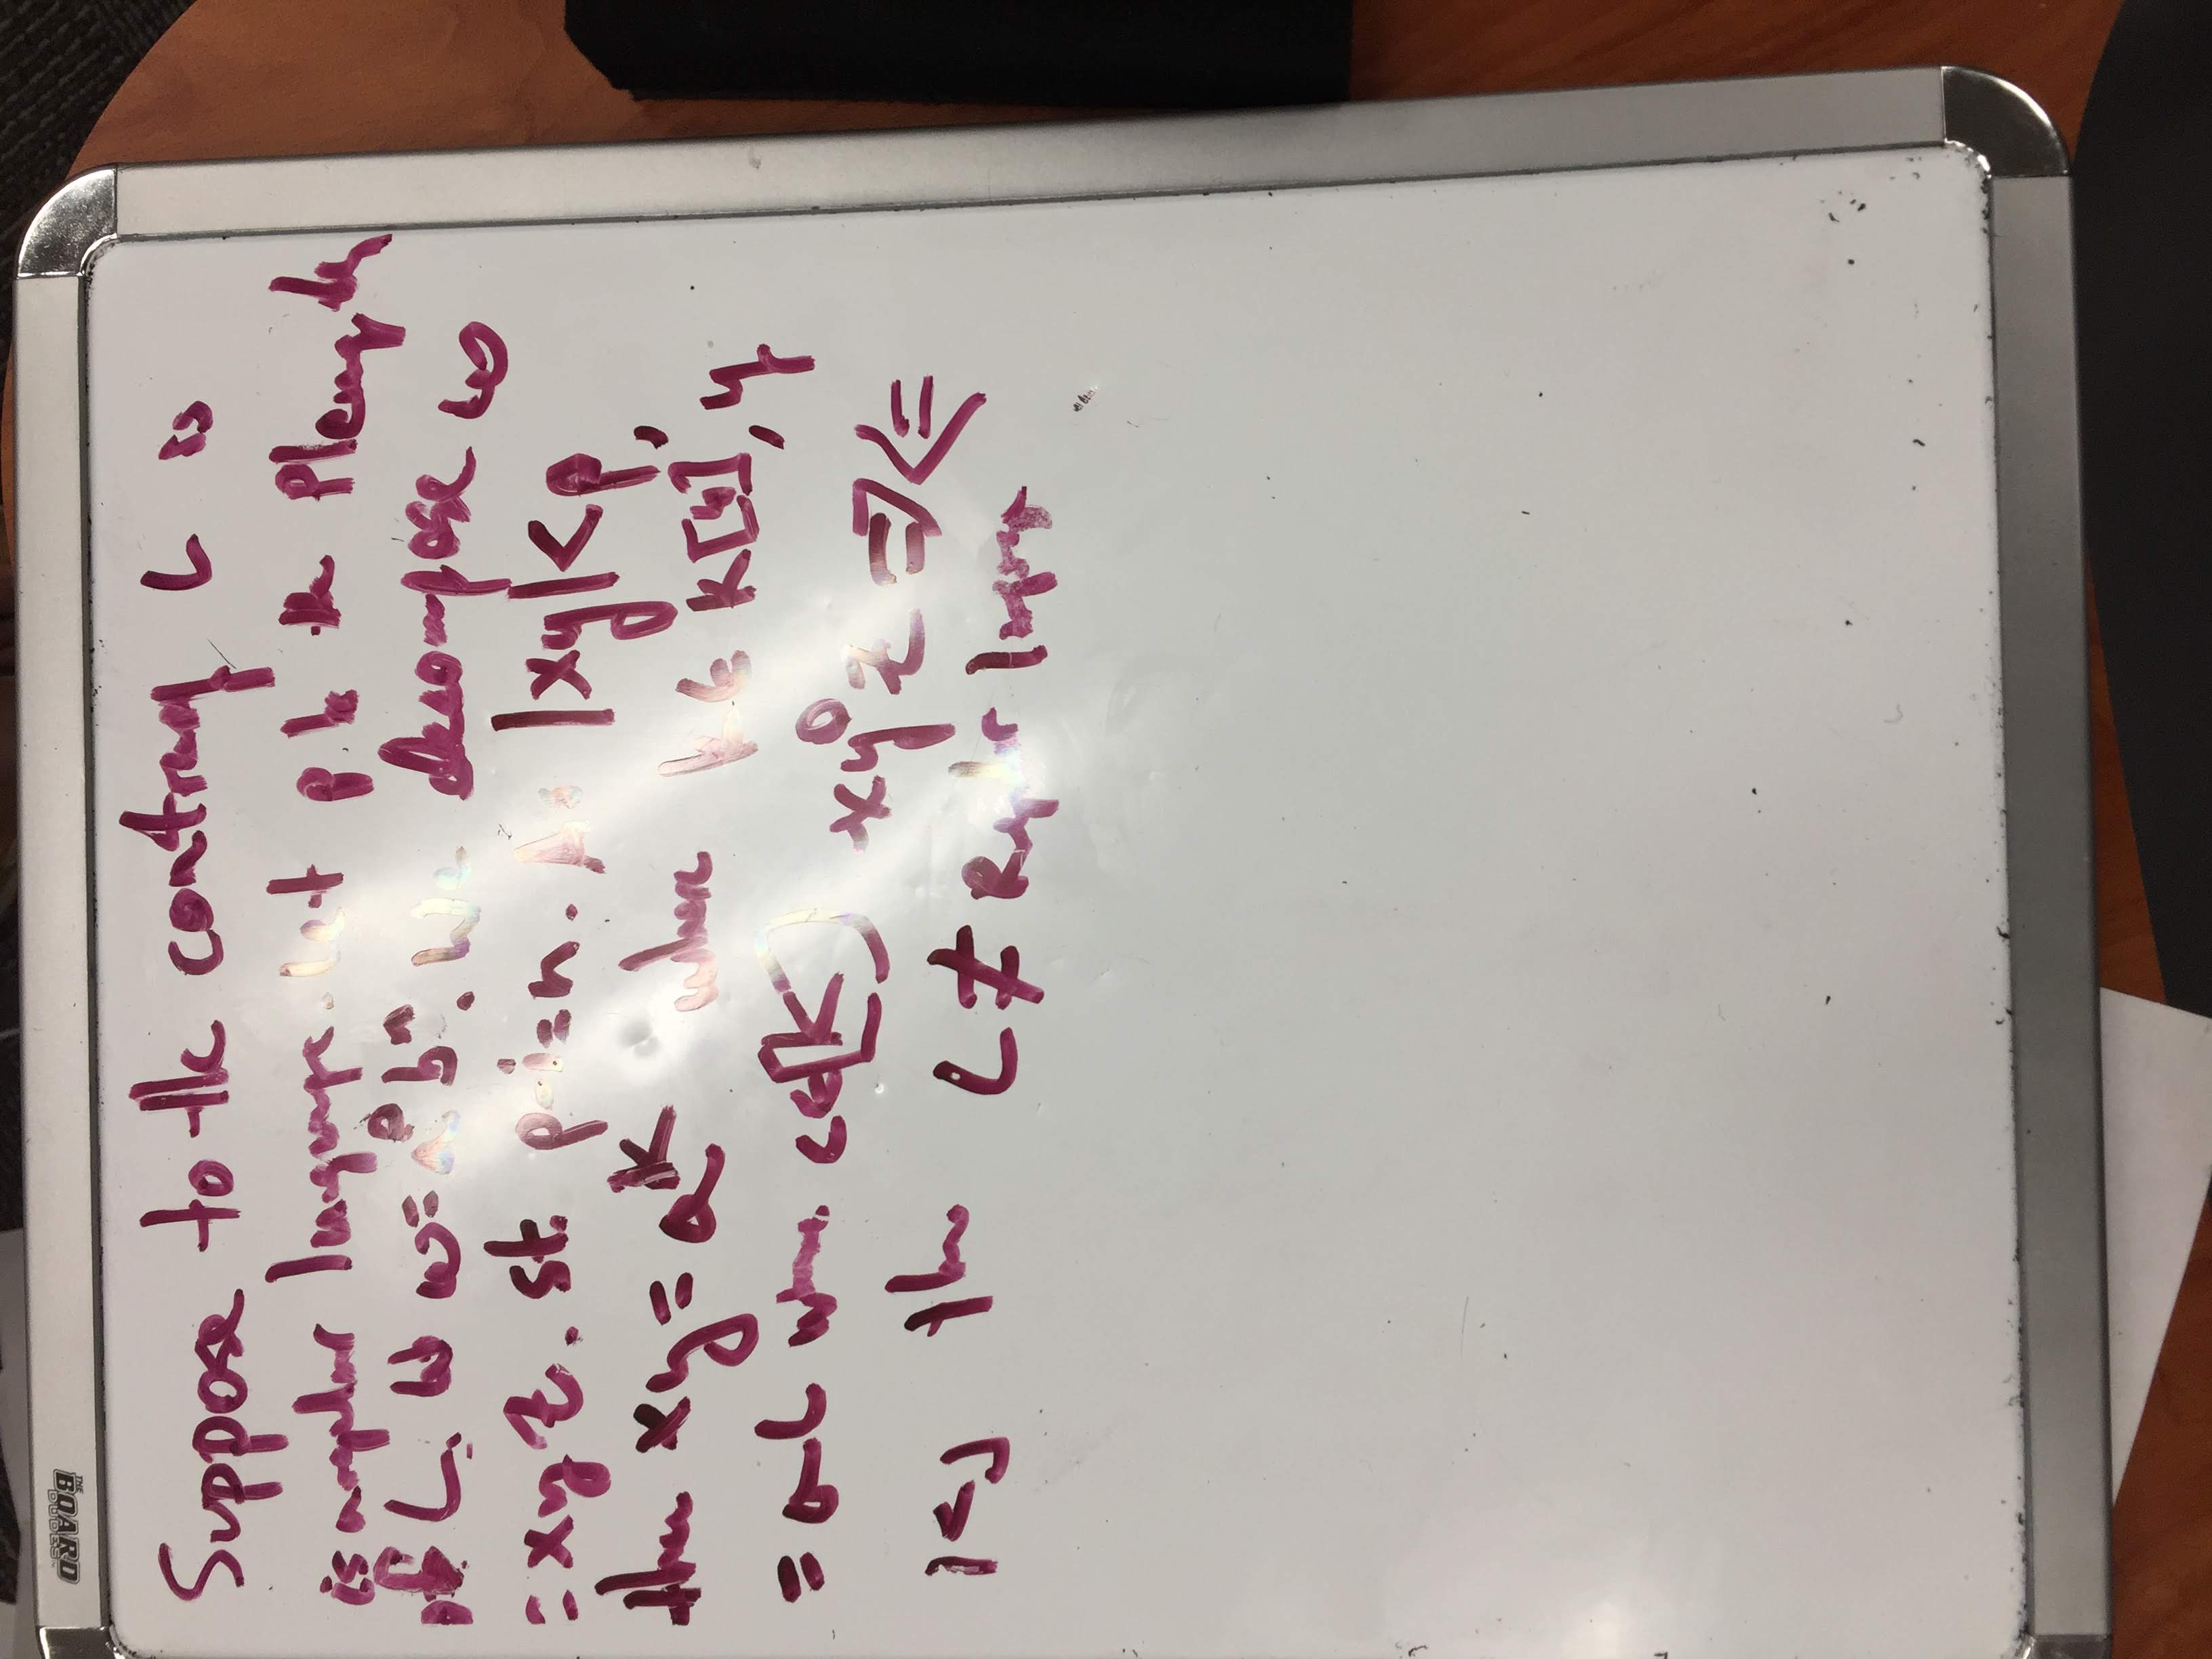 THE BOARD DUDES
Suppose to the contrary L is
is a regular language. Let p be the Plength
of L. w = a^p b^n. We decompose w
= xyz. st. p-i=n. As |xy|<p,
then xy = a^k where k ∈ K[y], y
= aL where [K] xy^0 z ⇒⇐
L ≠ Regular language